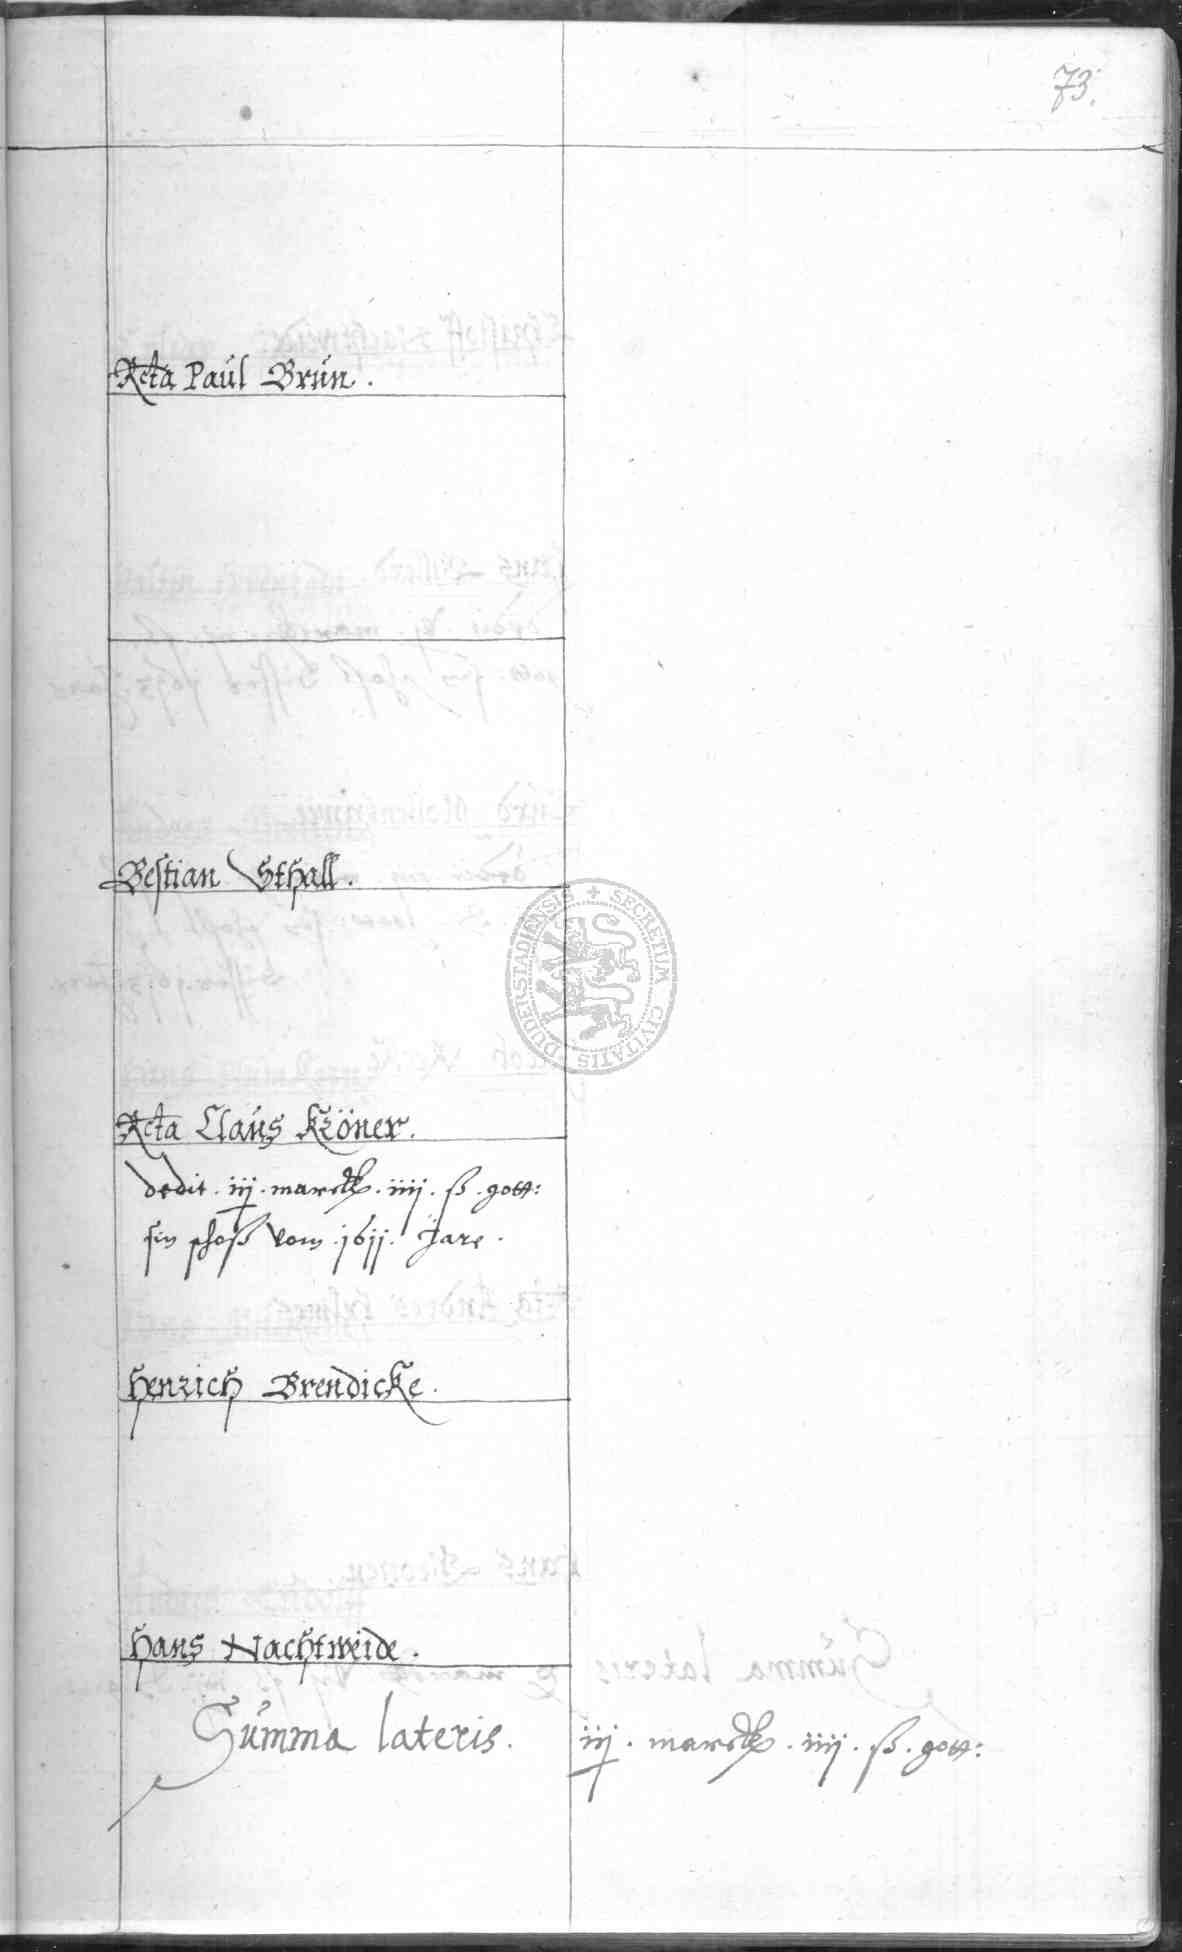 73.
Rcta Paúl Brún.
Bestian Sthall.
SECRETUM CIVITATIS DUDERSTADIENSIS
Rcta Claús Kröner.
dedit . iij . marck . iiij . ß . gott:
sin schoß vom . 1611 . Jare .
Henrich Brendicke.
Hans Nachtweide.
Súmma lateris. iij . marck . iiij . ß . gott: